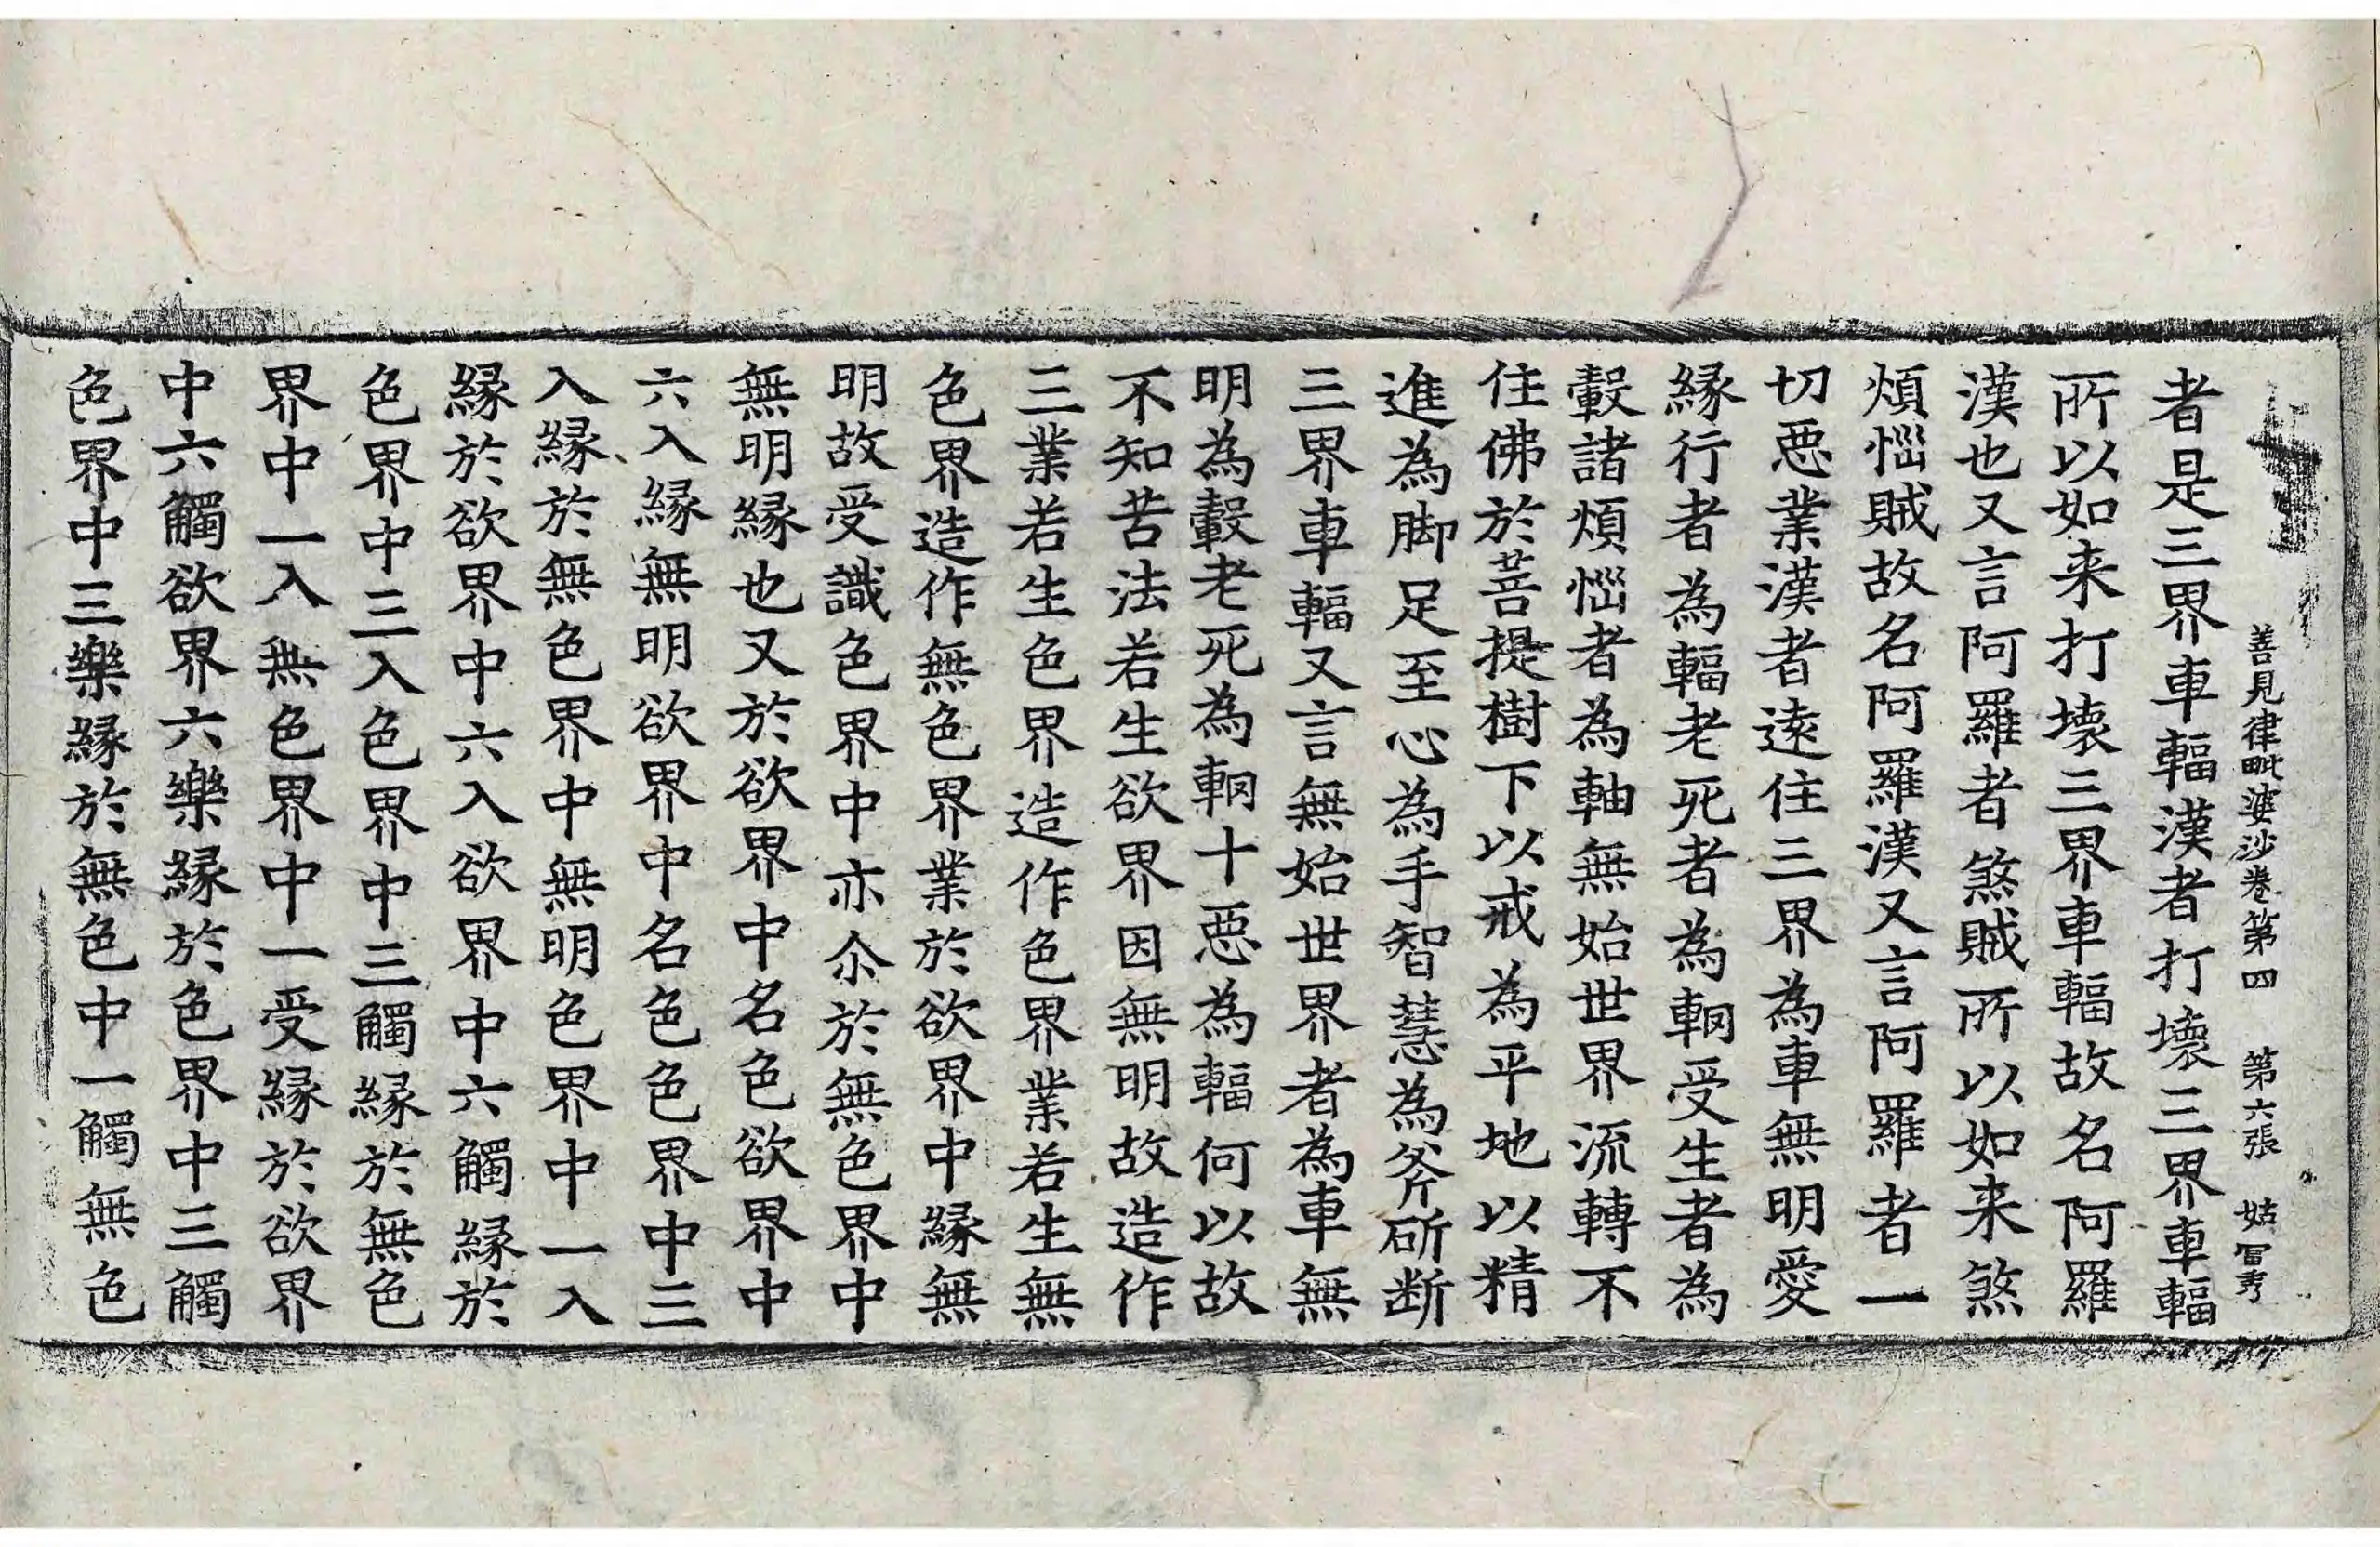 善見律毗婆沙卷第四 第六張 姑
者是三界車輻漢者打壞三界車輻
所以如来打壊三界車輻故名阿羅
漢也又言阿羅者煞賊所以如来煞
煩惱賊故名阿羅漢又言阿羅者一
切惡業漢者遠住三界為車無明愛
縁行者為輻老死者為輞受生者為
轂諸煩惱者為軸無始世界流轉不
住佛於菩提樹下以戒為平地以精
進為脚足至心為手智慧為斧斫断
三界車輻又言無始世界者為車無
明為轂老死為輞十惡為輻何以故
不知苦法若生欲界因無明故造作
三業若生色界造作色界業若生無
色界造作無色界業於欲界中縁無
明故受識色界中亦尒於無色界中
無明縁也又於欲界中名色欲界中
六入縁無明欲界中名色色界中三
入縁於無色界中無明色界中一入
縁於欲界中六入欲界中六觸縁於
色界中三入色界中三觸縁於無色
界中一入無色界中一受縁於欲界
中六觸欲界六樂縁於色界中三觸
色界中三樂縁於無色中一觸無色